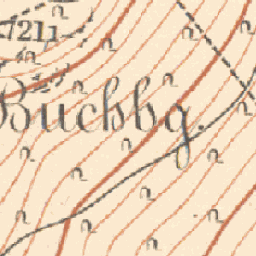 1211
Buchbg.